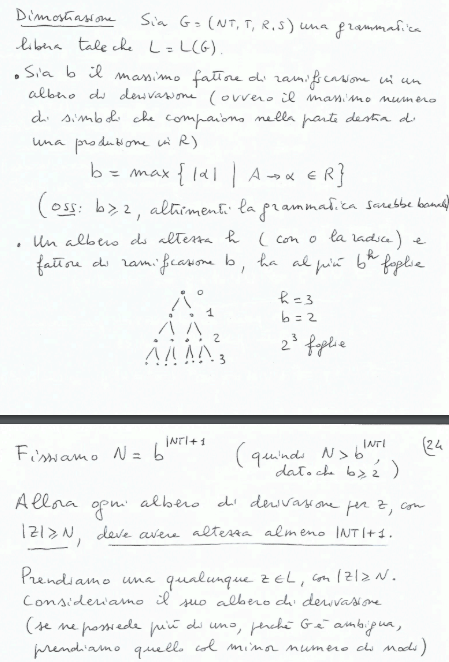 Dimostrazione Sia G = (NT, T, R, S) una grammatica
libera tale che L = L(G).
• Sia b il massimo fattore di ramificazione in un
albero di derivazione (ovvero il massimo numero
di simboli che compaiono nella parte destra di
una produzione in R)
b = max { |α| | A → α ∈ R }
(oss: b ≥ 2, altrimenti la grammatica sarebbe banale)
• Un albero di altezza h (con 0 la radice) e
fattore di ramificazione b, ha al più b^h foglie
0
1
2
3
h = 3
b = 2
2^3 foglie
Fissiamo N = b^{|NT|+1} (quindi N > b^{|NT|}, (24
dato che b ≥ 2)
Allora ogni albero di derivazione per z, con
|z| ≥ N, deve avere altezza almeno |NT|+1.
Prendiamo una qualunque z ∈ L, con |z| ≥ N.
Consideriamo il suo albero di derivazione
(se ne possiede più di uno, perché G è ambigua,
prendiamo quello col minor numero di nodi)